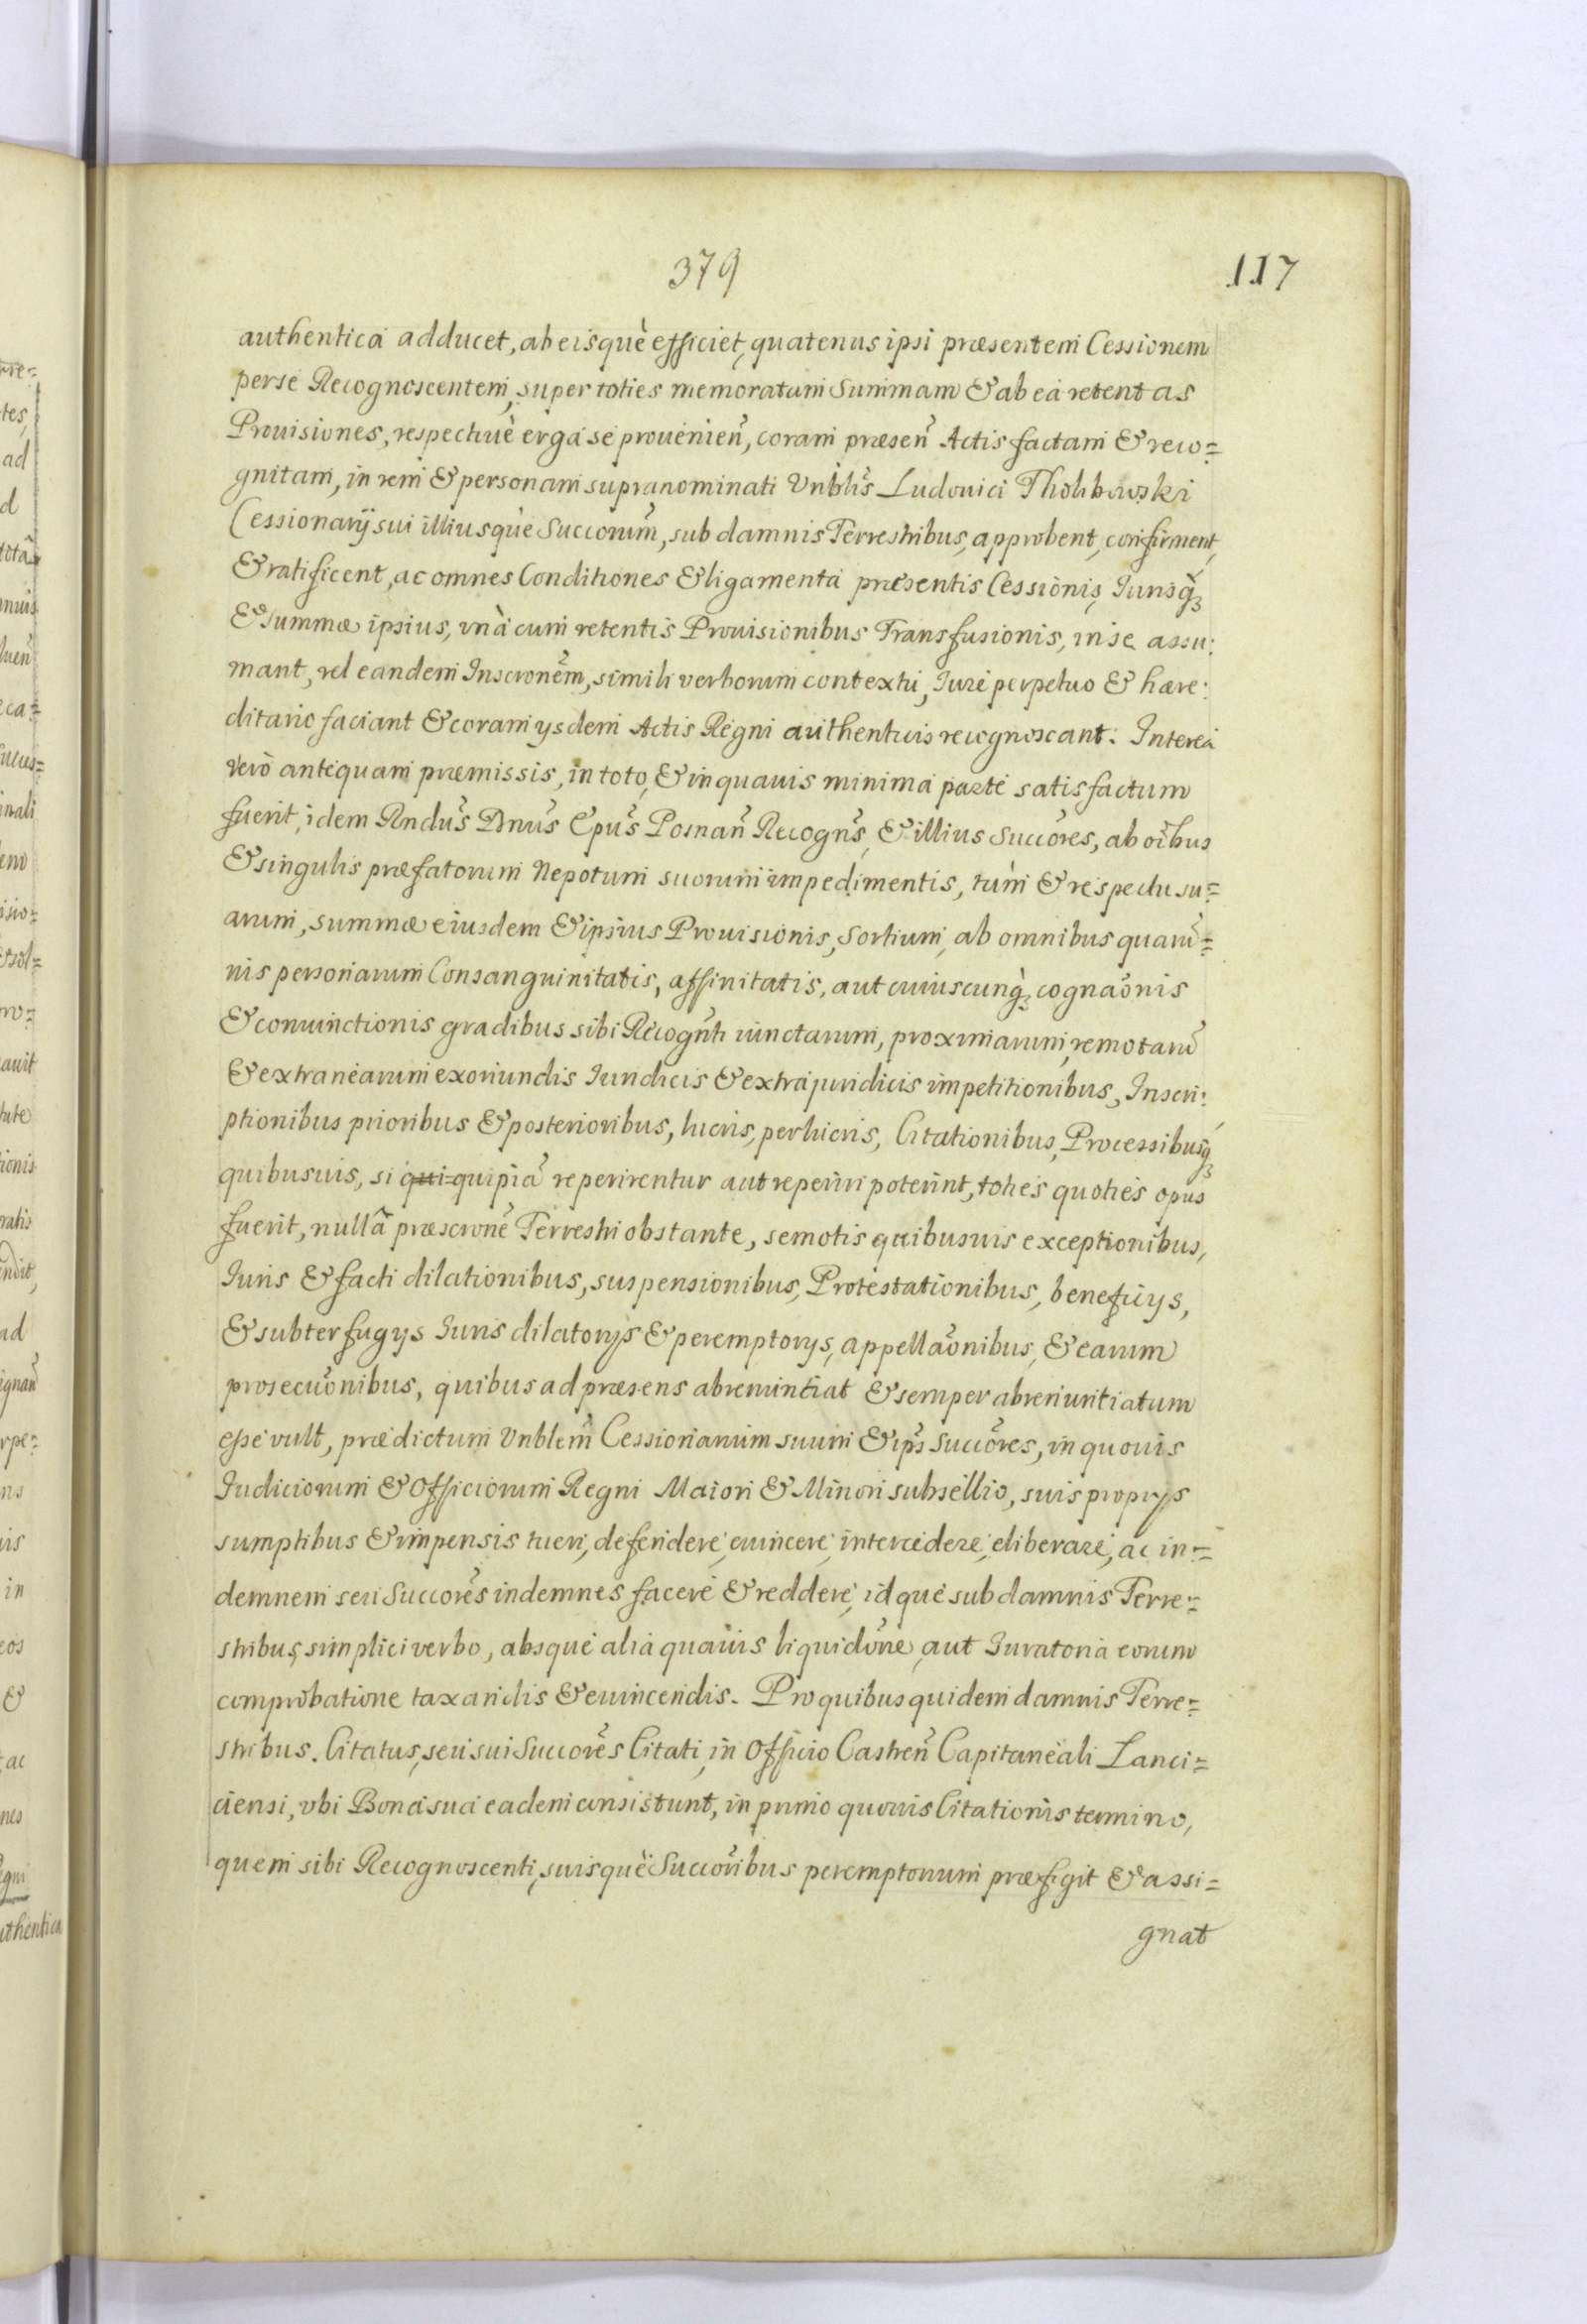 379
117
authentica adducet, ab eisquè efficiet, quatenus ipsi præsentem Cessionem
per se Recognoscentem, super toties memoratam Summam & ab ea retentas
Prouisiones, respectiuè erga se prouenieñ, coram præseñ Actis factam & reco=
gnitam, in rem & personam supranominati Vnblis̃ Ludouici Tholibowski
Cessionarij sui illiusque Succorum̃, sub damnis Terrestribus, approbent, confirment,
& ratificent, ac omnes Conditiones & ligamenta præsentis Cessionis, Iurisq̀3
& summæ ipsius, vnà cum retentis Prouisionibus Transfusionis, in se assu:
mant, vel eandem Inscronẽm, simili verborum contextu, Iure perpetuo & hære:
ditario faciant & coram ysdem Actis Regni authenticis recognoscant. Interea
verò antequam præmissis, in toto, & in quauis minima parte satisfactum
fuerit, idem Rndus̃ Dnus̃ Epus̃ Posnañ Recogns̃, & illius Succõres, ab oĩbus
& singulis præfatorum Nepotum suorum impedimentis, tùm & respectu su=
arum, summæ eiusdem & ipsius Prouisionis, Sortium, ab omnibus quarũ=
uis personarum Consanguinitatis, affinitatis, aut cuiuscunq̀3 cognaõnis
& conuinctionis gradibus sibi Recogñti iunctarum, proximarum, remotarũ
& extranearum exoriundis Iuridicis & extrajuridicis impetitionibus, Inscri:
ptionibus prioribus & posterioribus, lucris, perlucris, Citationibus, Processibusq3
quibusuis, si qui= quipiã reperirentur aut reperiri poterint, toties quoties opus
fuerit, nullâ præscronẽ Terrestri obstante, semotis quibusuis exceptionibus,
Iuris & facti dilationibus, suspensionibus, Protestationibus, beneficys,
& subterfugys Iuris dilatorys & peremptorys, appellaõnibus, & earum
prosecuõnibus, quibus ad præsens abrenuntiat & semper abrenuntiatum
esse vult, prædictum Vnblem̃ Cessionarium suum & ips̃ Succõres, in quouis
Iudiciorum & Officiorum Regni Maiori & Minori subsellio, suis proprys
sumptibus & impensis tueri, defendere, euincere, intercedere, eliberare, ac in=
demnem seu Succorẽs indemnes facere & reddere, idque sub damnis Terre=
stribus, simplici verbo, absque alia quauis liquidõne, aut Iuratoria eorum
comprobatione taxandis & euincendis. Pro quibus quidem damnis Terre=
stribus. Citatus, seu sui Succorẽs Citati, in Officio Castreñ Capitaneali Lanci=
ciensi, vbi Bona sua eadem consistunt, in primo quouis Citationis termino,
quem sibi Recognoscenti, suisquè Succoribus peremptorium præfigit & assi=
gnat